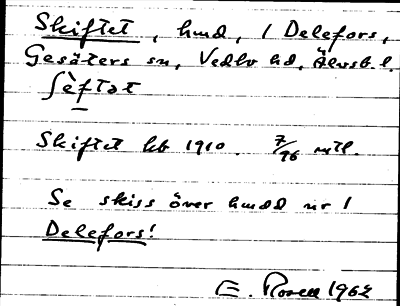 Skiftet, hmd, 1 Delefors,
Gesäters sn, Vedbo hd, Älvsb. l.
ʃèftət
Skiftet hb 1910. 7/96 mtl.
Se skiss över hmdd nr 1
Delefors!
E. Rosell 1962